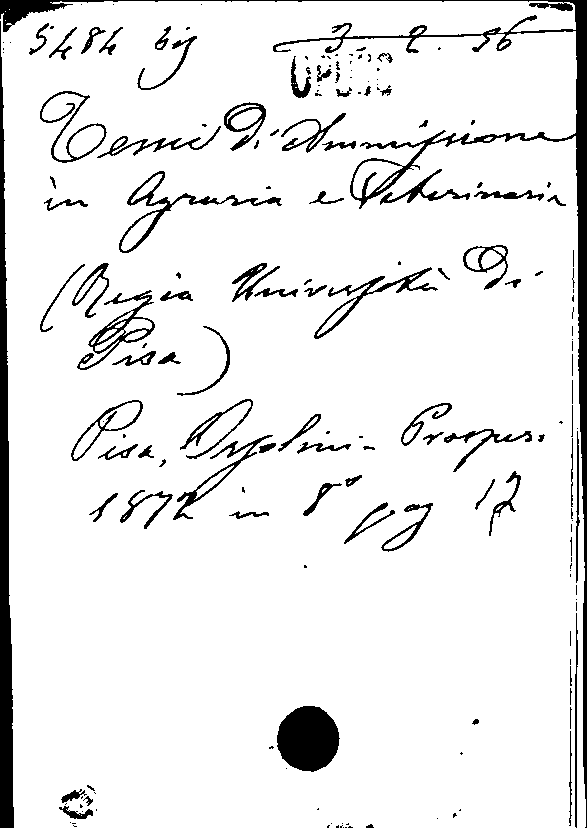 5484 bis 3. 2. 56
OPUSC
Temi di Ammissione
in Agraria e Veterinaria
(Regia Università di
Pisa)
Pisa, Orsolini-Prosperi
1872 in 8° pag 12